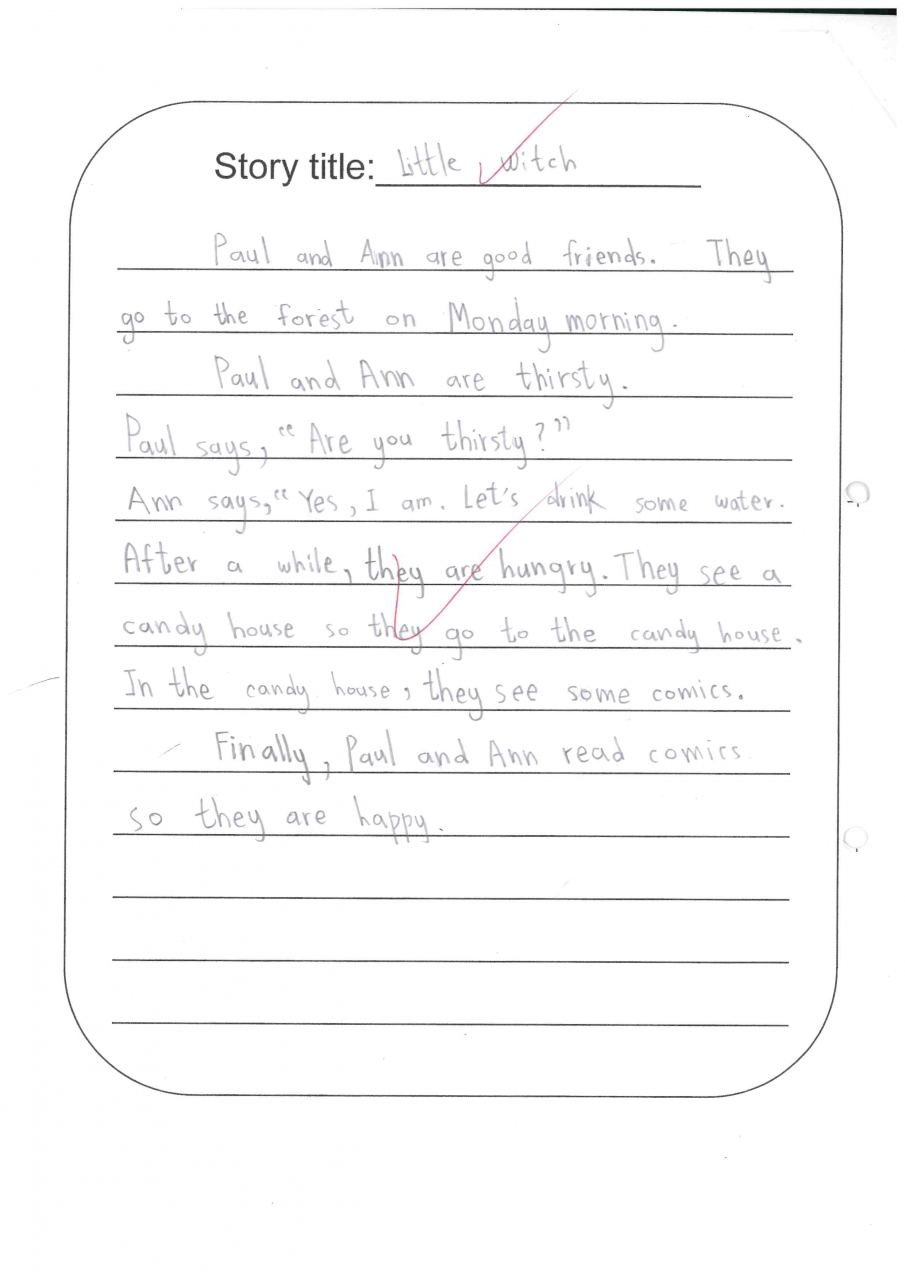 Story title: Little witch
Paul and Ann are good friends. They
go to the forest on Monday morning.
Paul and Ann are thirsty.
Paul says, “Are you thirsty?”
Ann says, “Yes, I am. Let's drink some water.
After a while, they are hungry. They see a
candy house so they go to the candy house.
In the candy house, they see some comics.
Finally, Paul and Ann read comics
so they are happy.